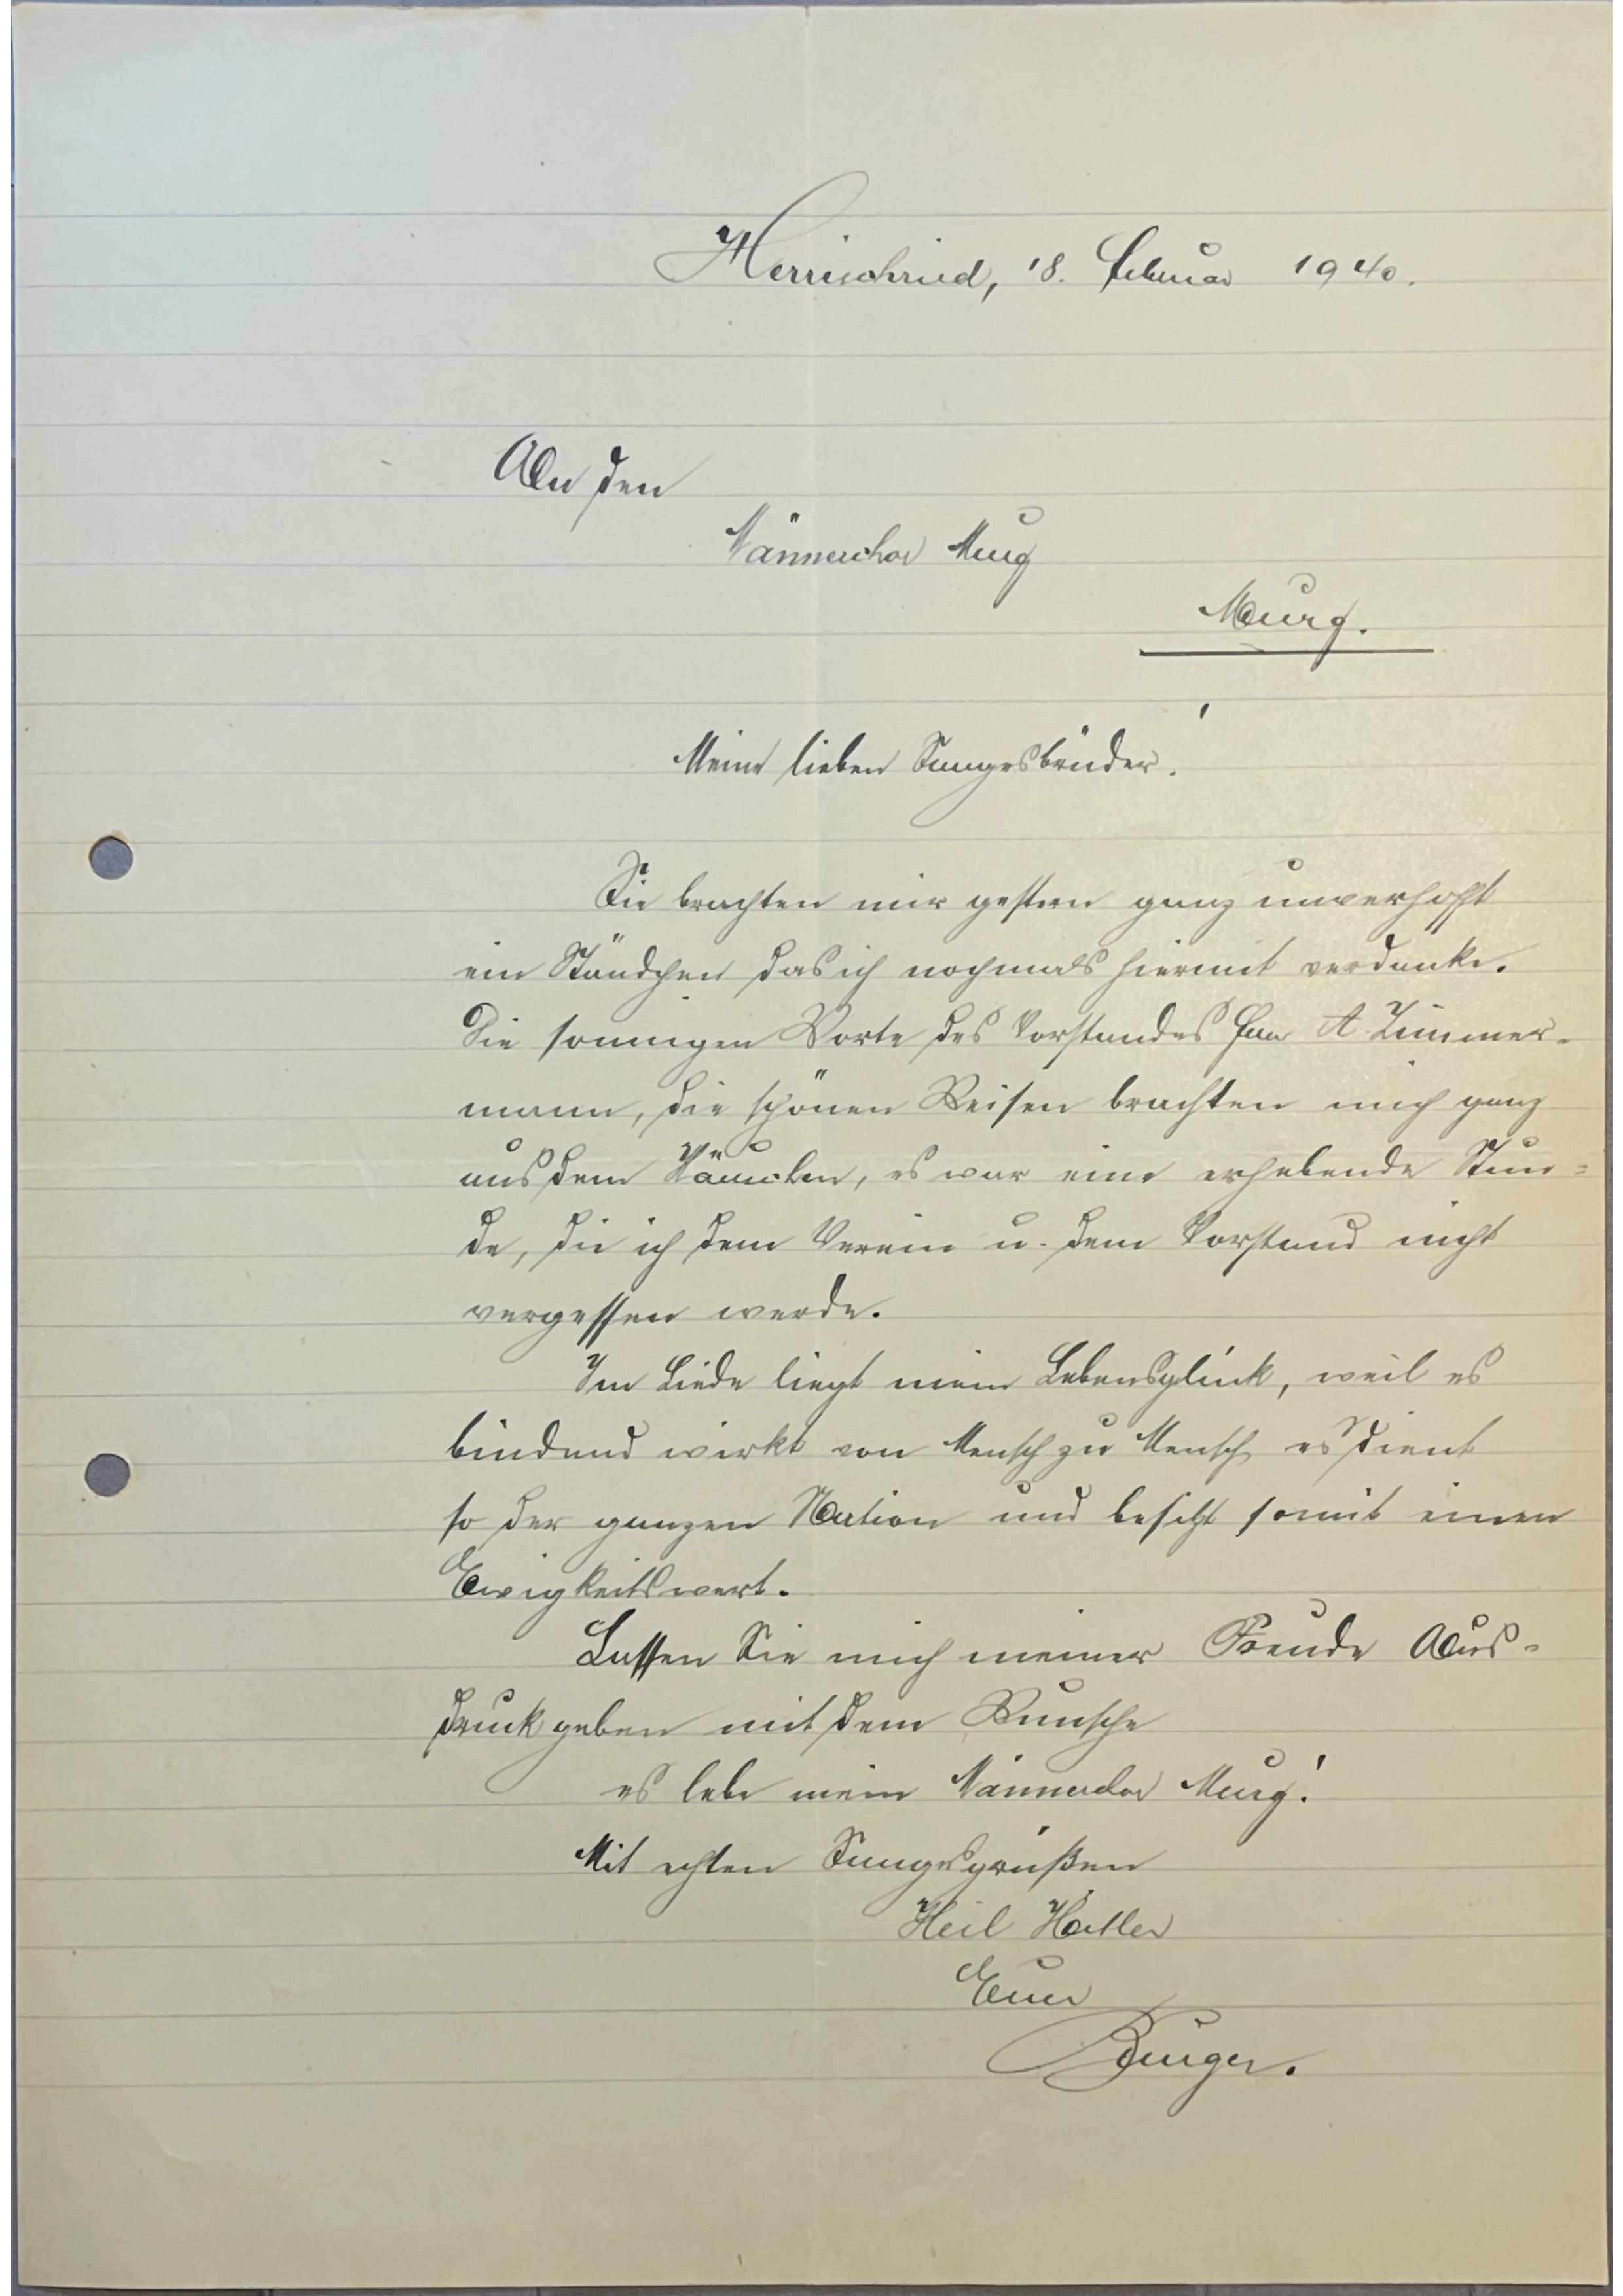 Herrischried, 18. Februar 1940.
An den
Männerchor Murg
Murg.
Meine lieben Sangesbrüder!
Sie brachten mir gestern ganz unverhofft
ein Ständchen das ich nochmals hiermit verdanke.
Die sonnigen Worte des Vorstandes Herrn A. Zimmer-
mann, die schönen Weisen brachten mich ganz
aus dem Häuschen, es war eine erhebende Stun=
de, die ich dem Verein u. dem Vorstand nicht
vergessen werde.
Im Liede liegt mein Lebensglück, weil es
bindend wirkt von Mensch zu Mensch es dient
so der ganzen Nation und besitzt somit einen
Ewigkeitswert.
Lassen Sie mich meiner Freude Aus=
druck geben mit dem Wunsche
es lebe mein Männerchor Murg!
Mit echten Sangesgrüßen
Heil Hitler
Euer